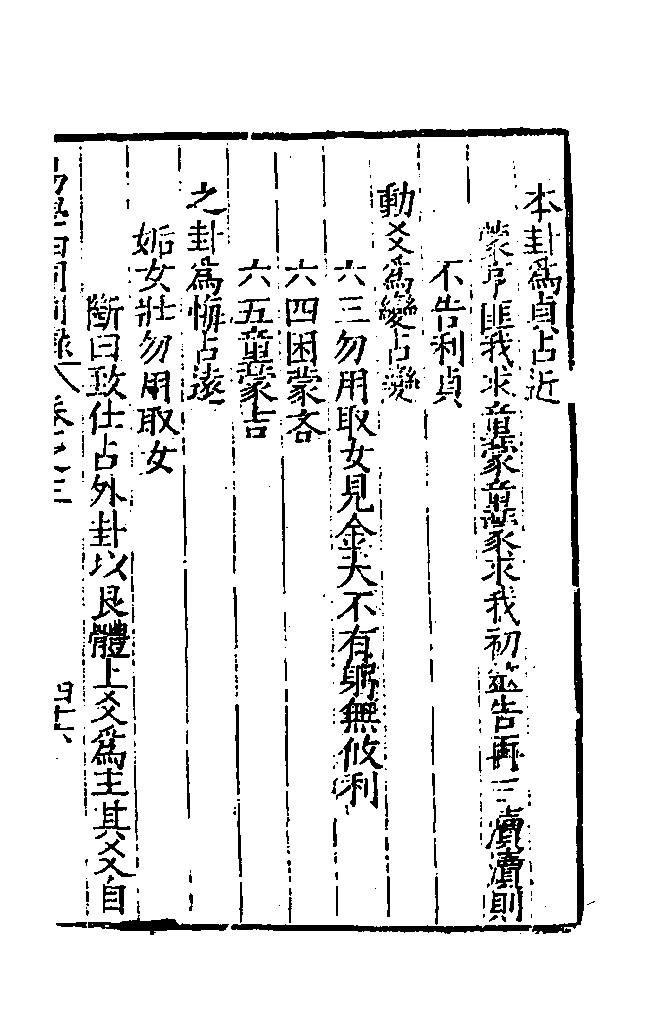 本卦為貞占近
蒙亨匪我求童蒙童蒙求我初筮告再三瀆瀆則
不告利貞
動爻為變占變
六三勿用取女見金夫不有躬無攸利
六四困蒙吝
六五童蒙吉
之卦為悔占遠
姤女壯勿用取女
斷曰致仕占外卦以艮體上爻為主其爻自
卷之三
四十六